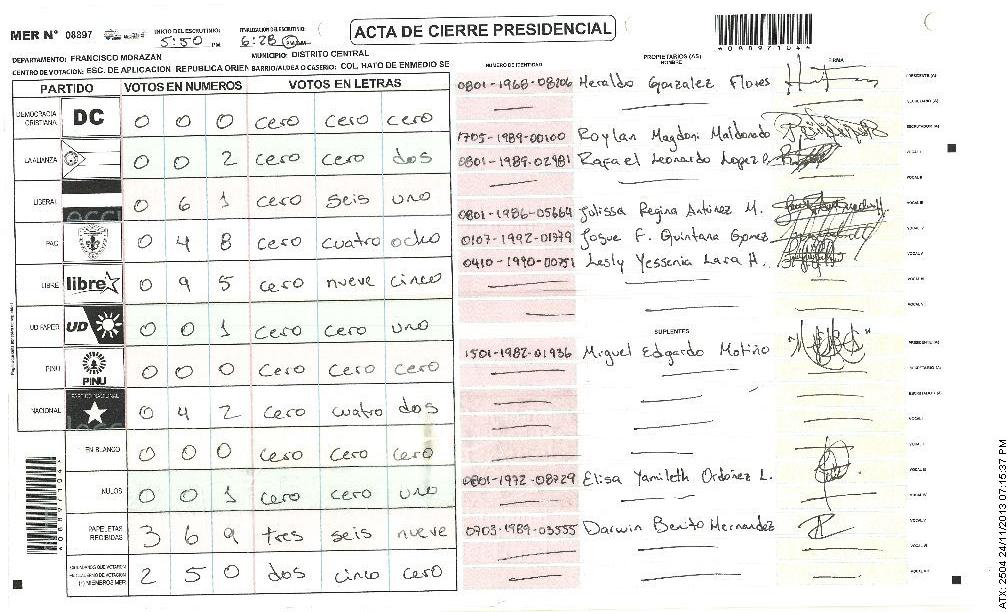 MER N° 08897 INICIO DEL ESCRUTINIO: 5:50 PM 6:28 PM
ACTA DE CIERRE PRESIDENCIAL
4088971044
DEPARTAMENTO: FRANCISCO MORAZAN MUNICIPIO: DISTRITO CENTRAL
CENTRO DE VOTACION: ESC. DE APLICACION REPUBLICA ORIEN BARRIO/ALDEA O CASERIO: COL. HATO DE ENMEDIO SE
PARTIDO VOTOS EN NUMEROS VOTOS EN LETRAS
DEMOCRACIA CRISTIANA DC 0 0 0 cero cero cero
LA ALIANZA 0 0 2 cero cero dos
LIBERAL 0 6 1 cero seis uno
PAC 0 4 8 cero cuatro ocho
LIBRE libre 0 9 5 cero nueve cinco
UD FAPER UD 0 0 1 cero cero uno
PINU PINU 0 0 0 cero cero cero
NACIONAL PARTIDO NACIONAL 0 4 2 cero cuatro dos
EN BLANCO 0 0 0 cero cero cero
NULOS 0 0 1 cero cero uno
PAPELETAS RECIBIDAS 3 6 9 tres seis nueve
CIUDADANOS QUE VOTARON 2 5 0 dos cinco cero
(+) MIEMBROS MER
NUMERO DE IDENTIDAD PROPIETARIOS (AS) NOMBRE FIRMA
0801-1968-08206 Heraldo Gonzalez Flores PRESIDENTE (A)
SECRETARIO (A)
1705-1989-00100 Roylan Magdoni Maldonado ESCRUTADOR (A)
0801-1989-02981 Rafael Leonardo Lopez P. VOCAL I
VOCAL II
0801-1986-05664 Julissa Regina Antunez M. VOCAL III
0107-1992-01979 Josue F. Quintana Gomez VOCAL IV
0410-1990-00751 Lesly Yessenia Lara H. VOCAL V
VOCAL VI
VOCAL VII
SUPLENTES
1501-1982-01936 Miguel Edgardo Motiño PRESIDENTE (A)
SECRETARIO (A)
ESCRUTADOR (A)
VOCAL I
VOCAL II
0801-1972-08729 Elisa Yamileth Ordoñez L. VOCAL III
VOCAL IV
0703-1989-03555 Darwin Benito Hernandez VOCAL V
VOCAL VI
VOCAL VII
4088971044
ATX: 2504 24/11/2013 07:15:37 PM